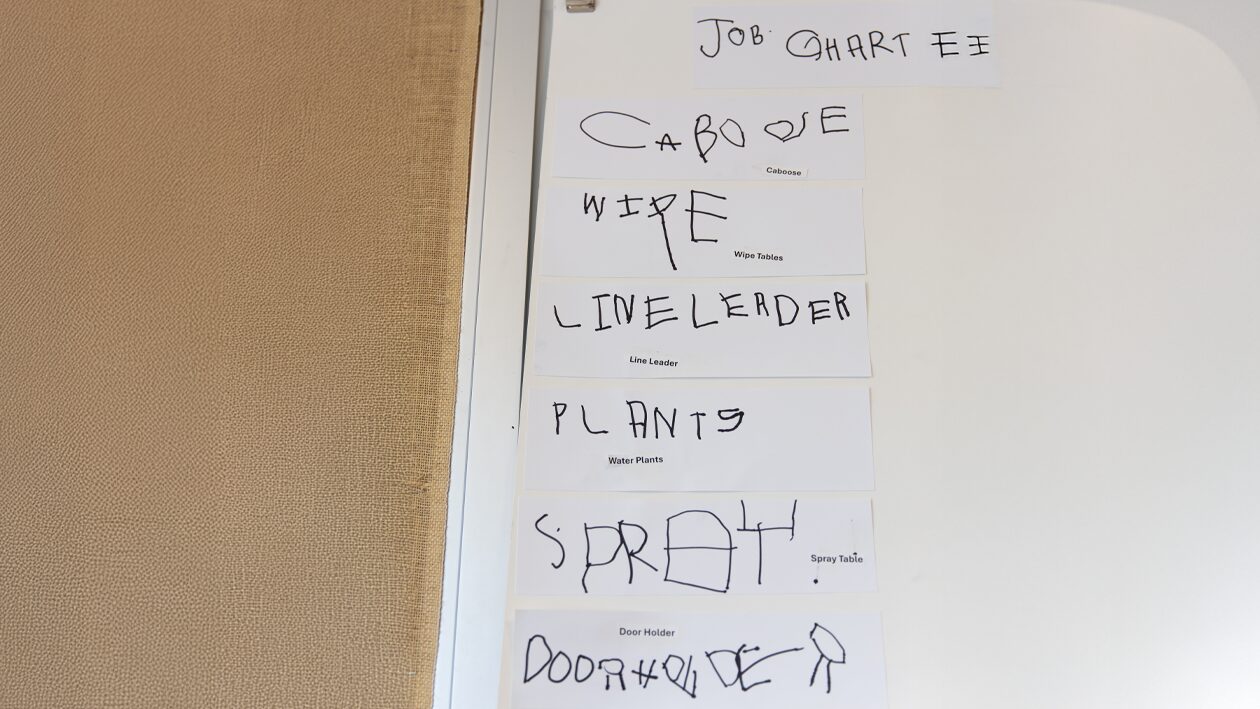 JOB CHART EE
CABOOSE
Caboose
WIPE
Wipe Tables
LINE LEADER
Line Leader
PLANTS
Water Plants
SPRAY
Spray Table
Door Holder
DOOR HOLDER